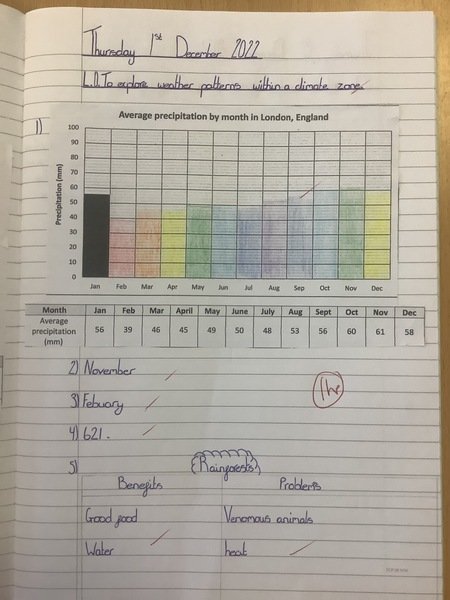 Thursday 1st December 2022
L.O. To explore weather patterns within a climate zone.
1)
Average precipitation by month in London, England
Precipitation (mm)
100
90
80
70
60
50
40
30
20
10
0
Jan Feb Mar Apr May Jun Jul Aug Sep Oct Nov Dec
Month Jan Feb Mar April May June July Aug Sep Oct Nov Dec
Average precipitation (mm) 56 39 46 45 49 50 48 53 56 60 61 58
2) November
3) Febuary
4) 621.
1hr
5)
Rainforests
Benefits Problems
Good food Venomous animals
Water heat